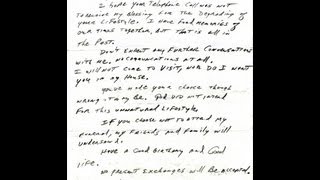 I hope your telephone call was not
to receive my blessing for the degrading of
your lifestyle. I have fond memories of
our times together, but that is all in
the past.
Don't expect any further conversations
with me. No communications at all.
I will not come to visit, nor do I want
you in my house.
You've made your choice though
wrong it may be. God did not intend
for this unnatural lifestyle.
If you choose not to attend my
funeral, my friends and family will
understand.
Have a good birthday and good
life.
No present exchanges will be accepted.